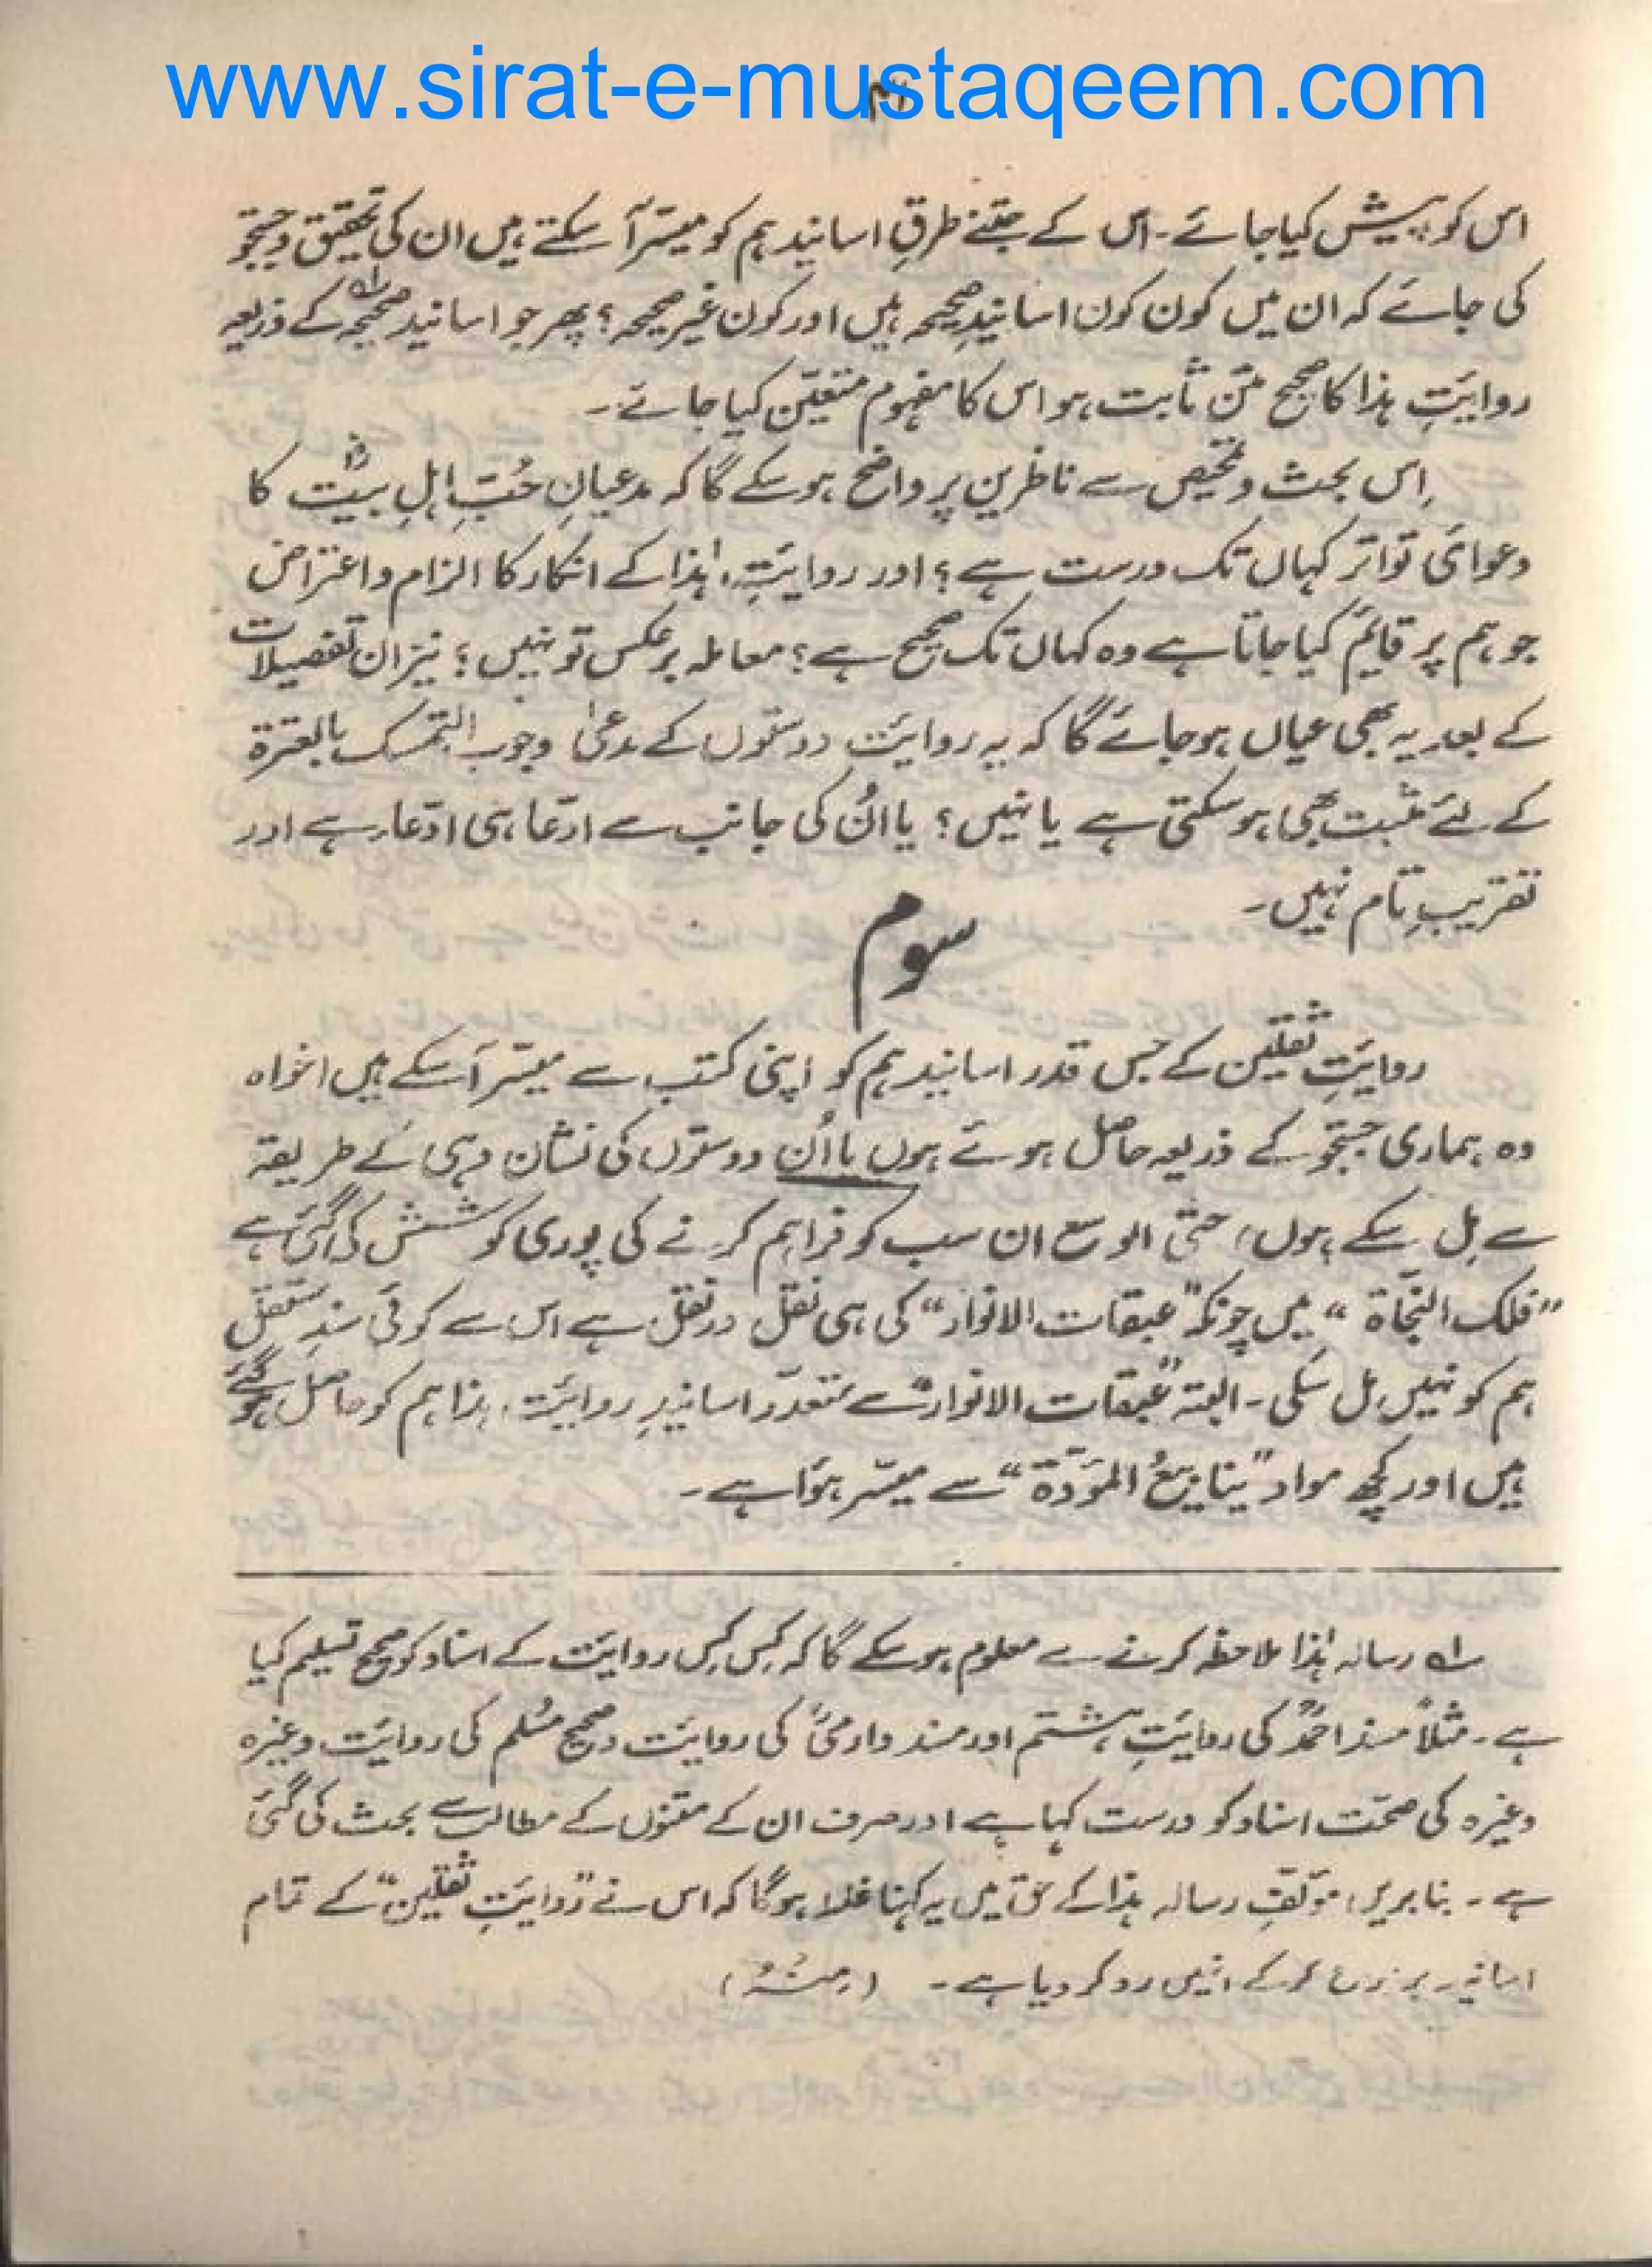 www.sirat-e-mustaqeem.com
اس کو پیش کیا جائے۔ اس کے جتنے طرقِ اسانید ہم کو میسّر آ سکتے ہیں ان کی تحقیق و جستجو
کی جائے کہ ان میں کون کون اسانیدِ صحیحہ ہیں اور کون غیر صحیحہ؟ پھر جو اسانید صحیحہ لہ کے ذریعہ
روایتِ ہذا کا صحیح متن ثابت ہو اس کا مفہوم متعیّن کیا جائے۔
اِس بحث و تمحیص سے ناظرین پر واضح ہو سکے گا کہ مدعیانِ حُبِّ اہلِ بیتؓ کا
دعوائ تواتر کہاں تک درست ہے؟ اور روایتِ ہٰذا کے انکار کا الزام و اعتراض
جو ہم پر قایم کیا جاتا ہے وہ کہاں تک صحیح ہے؟ معاملہ برعکس تو نہیں؟ نیز ان تفصیلات
کے بعد یہ بھی عیاں ہو جائے گا کہ یہ روایت دوستوں کے مدعیٰ وجوب التمسک بالعترۃ
کے لئے مثبت بھی ہو سکتی ہے یا نہیں؟ یا اُن کی جانب سے ادّعا ہی ادّعا ہے اور
تقریبِ تام نہیں۔
سوم
روایتِ ثقلین کے جس قدر اسانید ہم کو اپنی کتب سے میسّر آ سکے ہیں (خواہ
وہ ہماری جستجو کے ذریعہ حاصل ہوئے ہوں یا اُن دوستوں کی نشان دہی کے طریقہ
سے مِل سکے ہوں) حتی الوسع ان سب کو فراہم کرنے کی پوری کوشش کی گئی ہے
”فلک النجّاۃ“ میں چونکہ ”عبقات الانوار“ کی ہی نقل در نقل ہے اس سے کوئی سندِ مستقل
ہم کو نہیں مل سکی۔ البتہ ”عبقات الانوار“ سے متعدّد اسانیدِ روایت ہذا ہم کو حاصل ہو گئے
ہیں اور کچھ مواد ”ینابیعُ الموَدّۃ“ سے میسّر ہوَا ہے۔
لہ رسالہ ہٰذا ملاحظہ کرنے سے معلوم ہو سکے گا کہ کِس کِس روایت کے اسناد کو صحیح تسلیم کیا
ہے۔ مثلاً مسند احمدؒ کی روایتِ ہشتم اور مسند دارمیؒ کی روایت و صحیح مُسلم کی روایت وغیرہ
وغیرہ کی صحّت اسناد کو درست کہا ہے اور صرف ان کے متنوں کے مطالب سے بحث کی گئی
ہے۔ بنا بریں مؤلّفِ رسالہ ہذا کے حق میں یہ کہنا غلط ہوگا کہ اس نے ”روایتِ ثقلین“ کے تمام
اسانید پر کر کے انہیں رد کر دیا ہے۔ (منہُ)